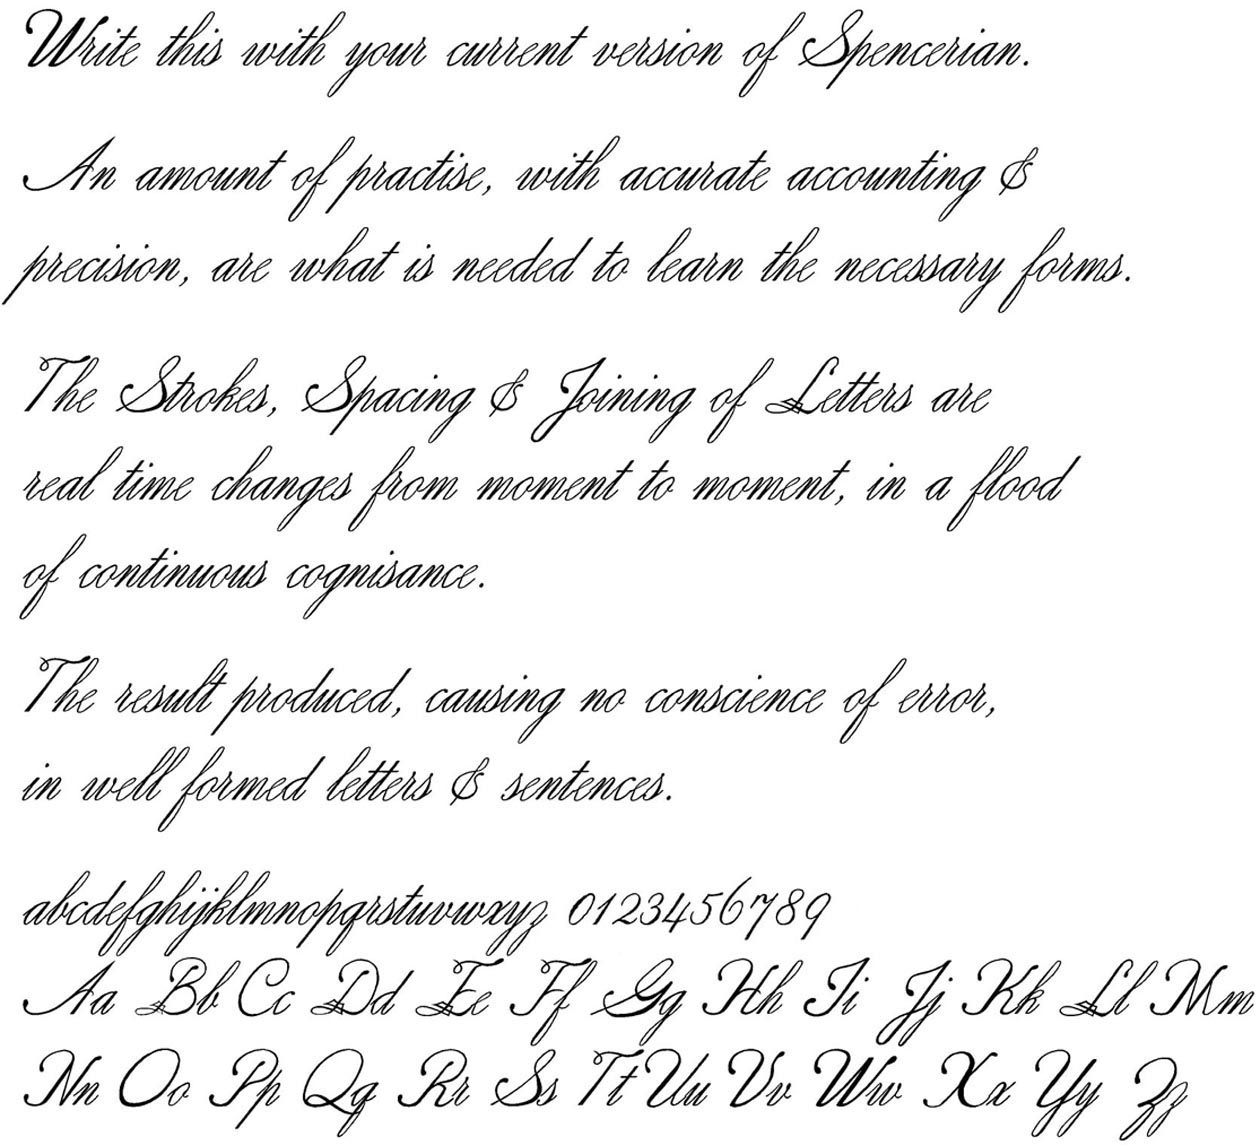 Write this with your current version of Spencerian.
An amount of practise, with accurate accounting &
precision, are what is needed to learn the necessary forms.
The Strokes, Spacing & Joining of Letters are
real time changes from moment to moment, in a flood
of continuous cognisance.
The result produced, causing no conscience of error,
in well formed letters & sentences.
abcdefghijklmnopqrstuvwxyz 0123456789
Aa Bb Cc Dd Ee Ff Gg Hh Ii Jj Kk Ll Mm
Nn Oo Pp Qq Rr Ss Tt Uu Vv Ww Xx Yy Zz